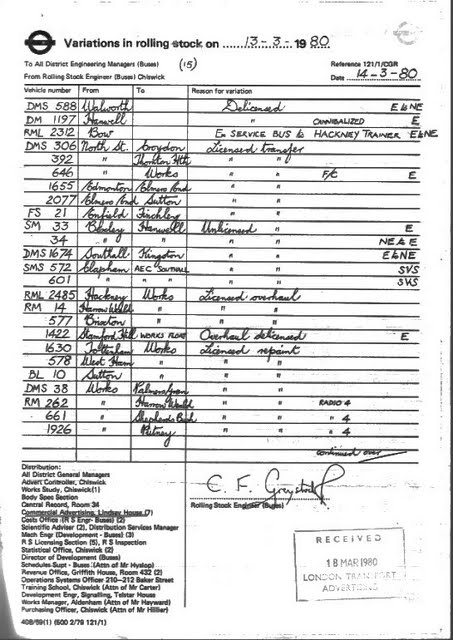 Variations in rolling stock on 13-3-1980
To All District Engineering Managers (Buses) (15) Reference 121/1/CGR
From Rolling Stock Engineer (Buses) Chiswick Date 14-3-80
Vehicle number From To Reason for variation
DMS 588 Walworth Delicensed E&NE
DM 1197 Hanwell " CANNIBALIZED E
RML 2312 Bow Ex SERVICE BUS to HACKNEY TRAINER E&NE
DMS 306 North St. Croydon Licensed transfer
392 " Thornton Hth " "
646 " Works " " F/C E
1655 Edmonton Elmers End " "
2077 Elmers End Sutton " "
FS 21 Enfield Finchley " "
SM 33 Bexley Hanwell Unlicensed " E
34 " " " " NE&E
DMS 1674 Southall Kingston " " E&NE
SMS 572 Clapham AEC SOUTHALL " " SVS
601 " " " " " SVS
RML 2485 Hackney Works Licensed overhaul
RM 14 Harrow Weald " " "
577 Brixton " " "
1422 Stamford Hill WORKS FLOAT Overhaul delicensed E
1630 Tottenham Works Licensed repaint
578 West Ham " " "
BL 10 Sutton " " "
DMS 38 Works Palmers Green " "
RM 262 " Harrow Weald " " RADIO 4
661 " Shepherds Bush " " " 4
1926 " Putney " " " 4
continued over
Distribution:
All District General Managers
Advert Controller, Chiswick
Works Study, Chiswick(1)
Body Spec Section
Central Record, Room 34
Commercial Advertising, Lindsay House (7)
Costs Office (R S Engr- Buses) (2)
Scientific Adviser (2), Distribution Services Manager
Mech Engr (Development - Buses) (3)
R S Licensing Section (5), R S Inspection
Statistical Office, Chiswick (2)
Director of Development (Buses)
Schedules-Supt - Buses (Attn of Mr Hyslop)
Revenue Office, Griffith House, Room 432 (2)
Operations Systems Officer 210-212 Baker Street
Training School, Chiswick (Attn of Mr Carter)
Development Engr, Signalling, Telstar House
Works Manager, Aldenham (Attn of Mr Hayward)
Purchasing Officer, Chiswick (Attn of Mr Hillier)
408/59(1) (500 2/79 121/1)
C. F. Greystock
Rolling Stock Engineer (Buses)
RECEIVED
18 MAR 1980
LONDON TRANSPORT
ADVERTISING